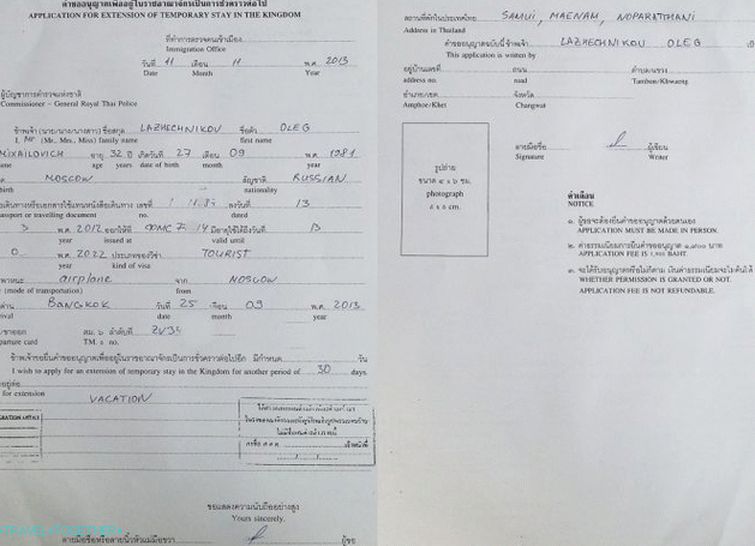 คำขออนุญาตเพื่ออยู่ในราชอาณาจักรเป็นการชั่วคราวต่อไป
APPLICATION FOR EXTENSION OF TEMPORARY STAY IN THE KINGDOM
ที่ทำการตรวจคนเข้าเมือง
Immigration Office
วันที่ 11 เดือน 11 พ.ศ. 2013
Date Month Year
ผู้บัญชาการตำรวจแห่งชาติ
Commissioner – General Royal Thai Police
ข้าพเจ้า (นาย/นาง/นางสาว) ชื่อสกุล LAZHECHNIKOV ชื่อตัว OLEG
I, Mr (Mr., Mrs., Miss) family name first name
MIXAILOVICH อายุ 32 ปี เกิดวันที่ 27 เดือน 09 พ.ศ. 1981
age years date of birth month year
MOSCOW สัญชาติ RUSSIAN
birth nationality
เลขที่ ลงวันที่ 13
passport or travelling document no. dated
3 พ.ศ. 2012 ออกให้ที่ 14 มีอายุใช้ได้ถึงวันที่ 13
year issued at valid until
0 พ.ศ. 2022 ประเภทของวีซ่า TOURIST
year kind of visa
พาหนะ airplane จาก MOSCOW
(mode of transportation) from
BANGKOK วันที่ 25 เดือน 09 พ.ศ. 2013
date month year
ขาออก ตม. ๖ ลำดับที่ ZV34
TM. 6 no.
ข้าพเจ้าขอยื่นคำขออนุญาตเพื่ออยู่ในราชอาณาจักรเป็นการชั่วคราวต่อไปอีก มีกำหนด วัน
I wish to apply for an extension of temporary stay in the Kingdom for another period of 30 days.
อยู่ต่อ
for extension VACATION
ขอแสดงความนับถืออย่างสูง
Yours sincerely,
ลายมือชื่อหรือลายนิ้วหัวแม่มือขวา ผู้ขอ
สถานที่พักในประเทศไทย SAMUI, MAENAM, NOPARATTHANI
Address in Thailand
คำขออนุญาตฉบับนี้ข้าพเจ้า LAZHECHNIKOV OLEG
This application is written by
อยู่บ้านเลขที่ ถนน ตำบล/แขวง
address no. road Tambon/Khwaeng
อำเภอ/เขต จังหวัด
Amphoe/Khet Changwat
ลายมือชื่อ ผู้เขียน
Signature Writer
รูปถ่าย
ขนาด ๔ x ๖ ซม.
photograph
คำเตือน
NOTICE
๑. ผู้ขอจะต้องยื่นคำขออนุญาตด้วยตนเอง
APPLICATION MUST BE MADE IN PERSON.
๒. ค่าธรรมเนียมการยื่นคำขออนุญาต ๑,๙๐๐ บาท
APPLICATION FEE IS 1,900 BAHT.
๓. จะได้รับอนุญาตหรือไม่ก็ตาม เงินค่าธรรมเนียมจะไม่คืนให้
WHETHER PERMISSION IS GRANTED OR NOT.
APPLICATION FEE IS NOT REFUNDABLE.